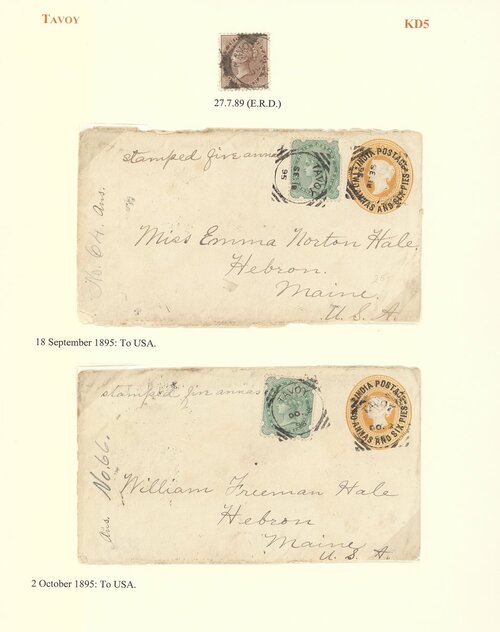 TAVOY
KD5
27.7.89 (E.R.D.)
stamped five annas
TAVOY
SE 18
95
INDIA POSTAGE
TWO ANNAS AND SIX PIES
No. 64. Ans.
Miss Emma Norton Hale,
Hebron.
Maine.
U. S. A.
18 September 1895: To USA.
stamped five annas
TAVOY
OC 2
95
INDIA POSTAGE
ANNAS AND SIX PIES
TAVOY
OC 2
Ans. No. 66.
William Freeman Hale
Hebron
Maine
U. S. A.
2 October 1895: To USA.